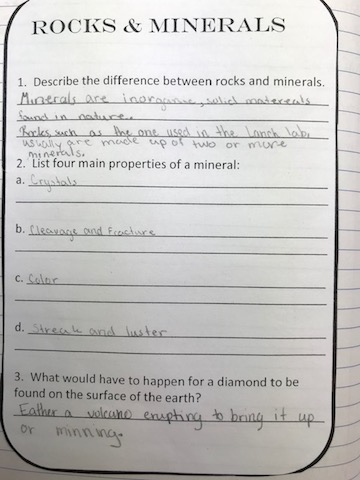 ROCKS & MINERALS
1. Describe the difference between rocks and minerals.
Minerals are inorganic, solid matereals
found in nature.
Rocks, such as the one used in the Lanch lab,
usually are made up of two or more
minerals.
2. List four main properties of a mineral:
a. Crystals
b. Cleavage and Fracture
c. Color
d. Streak and luster
3. What would have to happen for a diamond to be
found on the surface of the earth?
Eather a volcano erupting to bring it up
or minning.